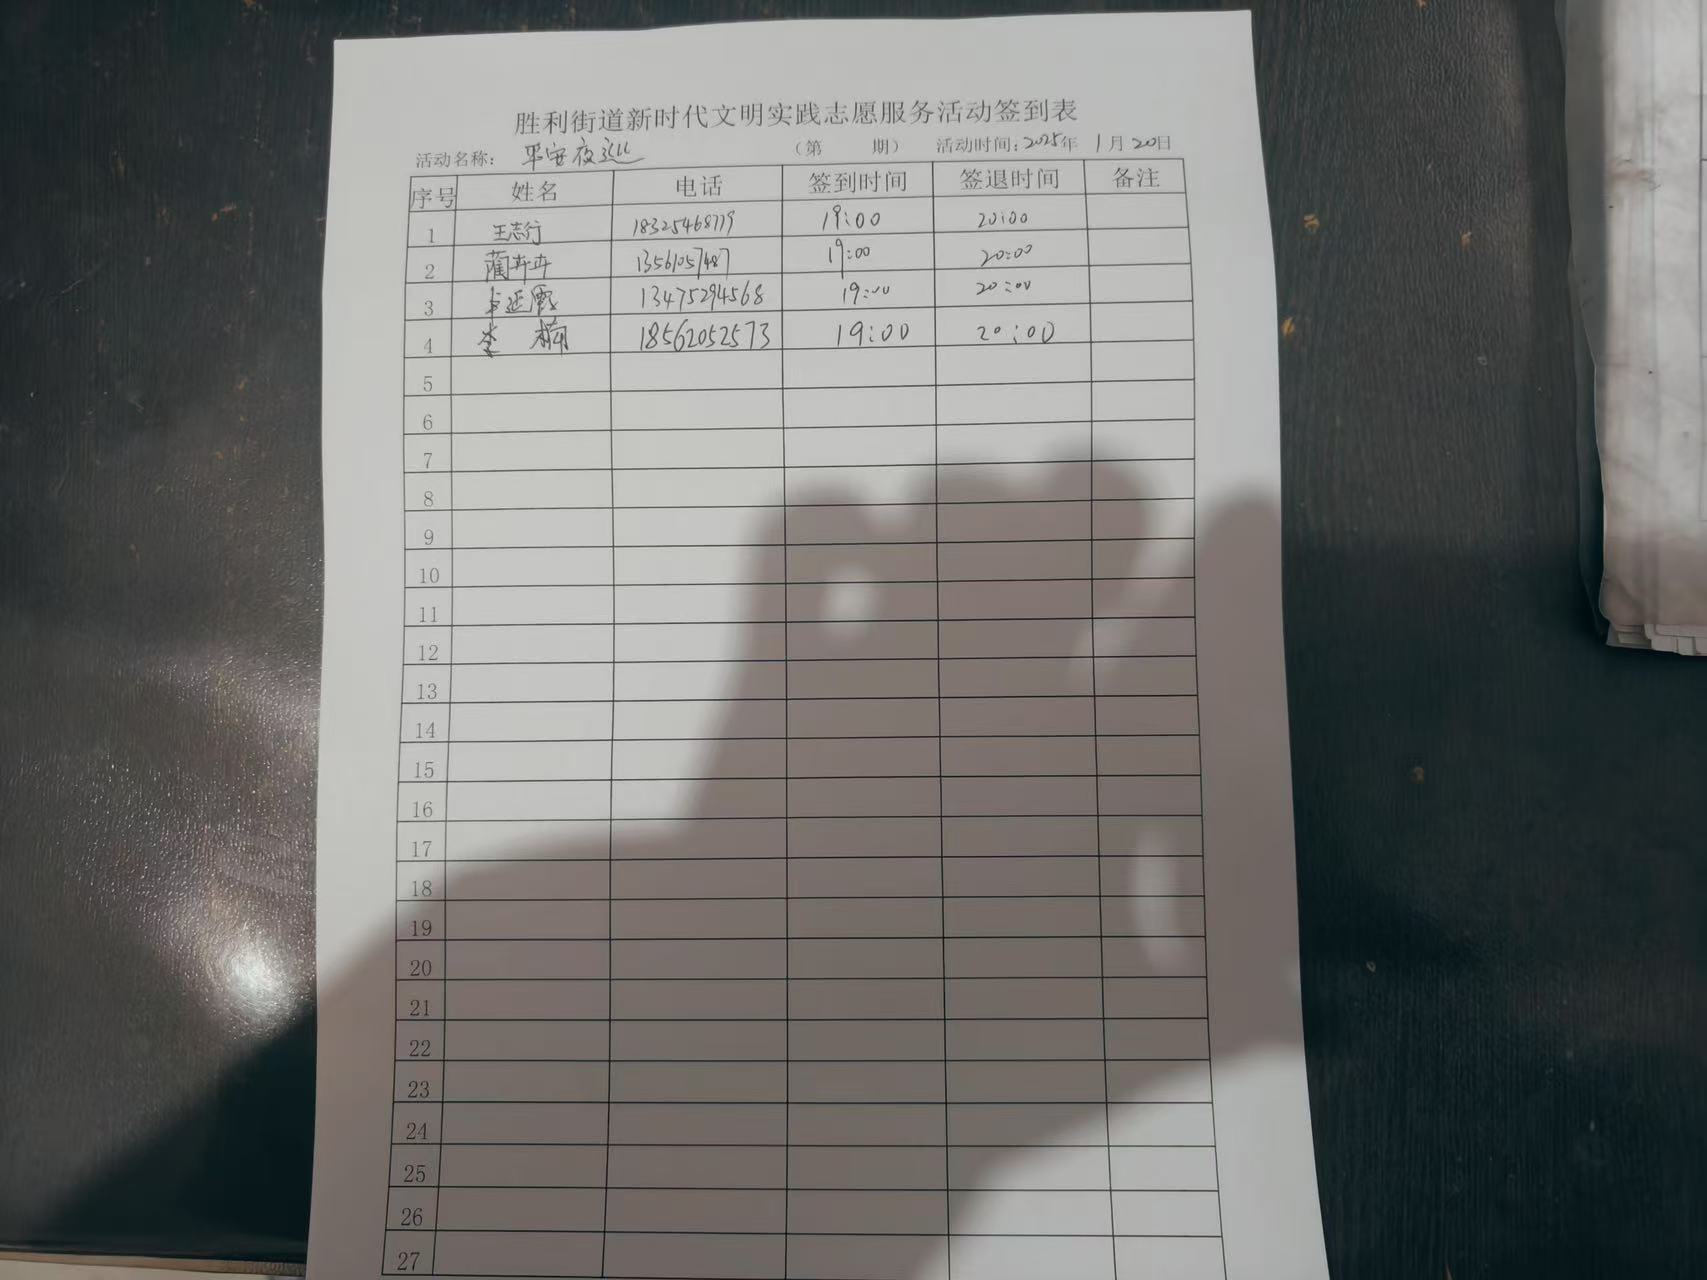 胜利街道新时代文明实践志愿服务活动签到表
活动名称： 平安夜巡 （第 期） 活动时间：2025年 1月20日
序号 姓名 电话 签到时间 签退时间 备注
1 王志行 18325468779 19:00 20:00
2 蔺卉卉 13561057487 19:00 20:00
3 延霞 13475294568 19:00 20:00
4 李楠 18562052573 19:00 20:00
5
6
7
8
9
10
11
12
13
14
15
16
17
18
19
20
21
22
23
24
25
26
27